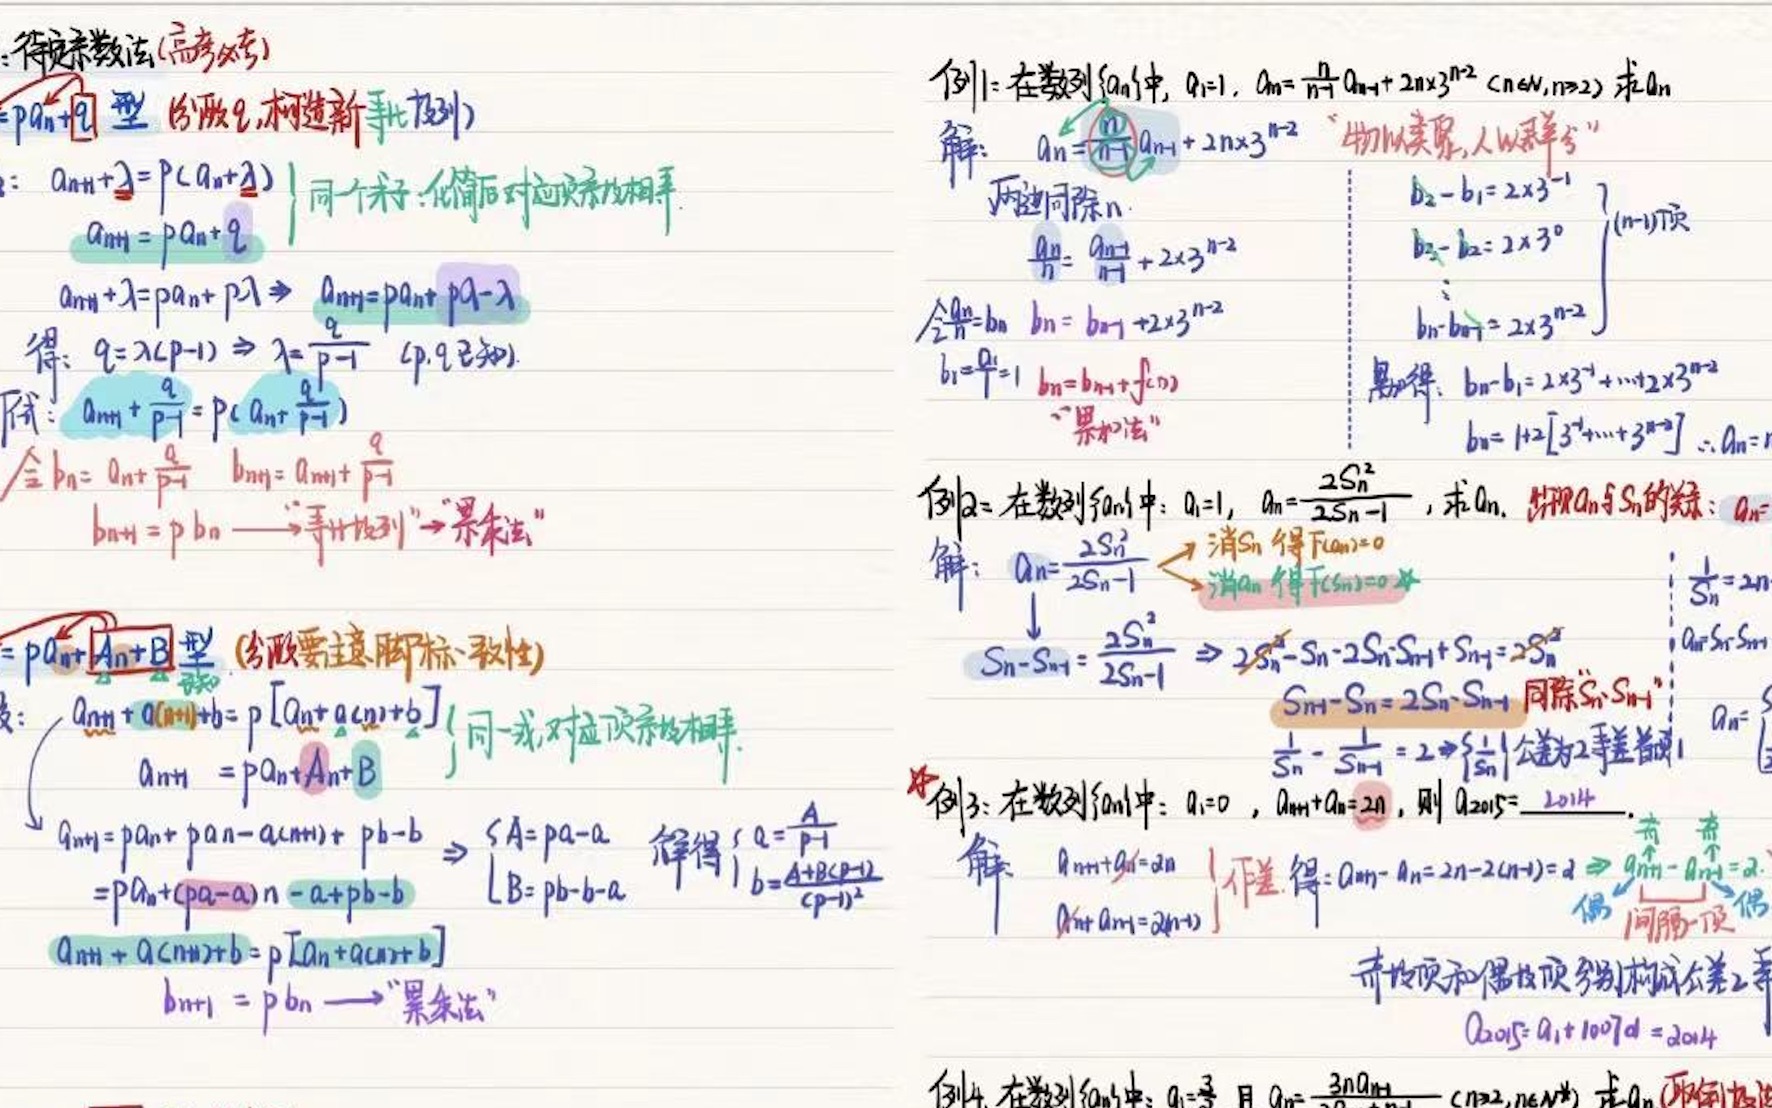 : 待定系数法(高考必考)
=paₙ+q 型 (分配q,构造新等比数列)
: aₙ₊₁+λ=p(aₙ+λ)
aₙ₊₁=paₙ+q
同一个求子:化简后对应项系数相等.
aₙ₊₁+λ=paₙ+pλ ⇒ aₙ₊₁=paₙ+pλ-λ
得: q=λ(p-1) ⇒ λ=q/(p-1) (p.q已知).
原式: aₙ₊₁+q/(p-1)=p(aₙ+q/(p-1))
令bₙ=aₙ+q/(p-1) bₙ₊₁=aₙ₊₁+q/(p-1)
bₙ₊₁=pbₙ ⟶ "等比数列" → "累乘法"
=paₙ+An+B 型 (分配要注意脚标一致性)
已知
设: aₙ₊₁+a(n+1)+b=p[aₙ+a(n)+b]
aₙ₊₁=paₙ+An+B
同一式,对应项系数相等.
aₙ₊₁=paₙ+pan-a(n+1)+pb-b ⇒ {A=pa-a 解得 {a=A/(p-1)
=paₙ+(pa-a)n-a+pb-b B=pb-b-a b=(A+B(p-1))/(p-1)²
aₙ₊₁+a(n+1)+b=p[aₙ+a(n)+b]
bₙ₊₁=pbₙ ⟶ "累乘法"
例1: 在数列{aₙ}中, a₁=1, aₙ=n/(n-1) aₙ₋₁+2n×3ⁿ⁻² (n∈N,n≥2) 求aₙ
解: aₙ=n/(n-1) aₙ₋₁+2n×3ⁿ⁻² "物以类聚,人以群分"
两边同除n.
aₙ/n=aₙ₋₁/(n-1)+2×3ⁿ⁻²
令aₙ/n=bₙ bₙ=bₙ₋₁+2×3ⁿ⁻²
b₁=a₁/1=1 bₙ=bₙ₋₁+f(n)
"累加法"
b₂-b₁=2×3⁻¹
b₃-b₂=2×3⁰
⋮
bₙ-bₙ₋₁=2×3ⁿ⁻²
(n-1)项
累加得: bₙ-b₁=2×3⁻¹+…+2×3ⁿ⁻²
bₙ=1+2[3⁻¹+…+3ⁿ⁻²] ∴aₙ=n
例2: 在数列{aₙ}中: a₁=1, aₙ=2Sₙ²/(2Sₙ-1), 求aₙ. 出现aₙ与Sₙ的关系: aₙ=
解: aₙ=2Sₙ²/(2Sₙ-1)
消Sₙ 得F(aₙ)=0
消aₙ 得F(Sₙ)=0 ☆
Sₙ-Sₙ₋₁=2Sₙ²/(2Sₙ-1) ⇒ 2Sₙ²-Sₙ-2Sₙ·Sₙ₋₁+Sₙ₋₁=2Sₙ²
Sₙ₋₁-Sₙ=2Sₙ·Sₙ₋₁ 同除"Sₙ·Sₙ₋₁"
1/Sₙ-1/Sₙ₋₁=2 ⇒ {1/Sₙ} 公差为2等差首项1
1/Sₙ=2n
aₙ=Sₙ-Sₙ₋₁
aₙ={
☆例3: 在数列{aₙ}中: a₁=0, aₙ₊₁+aₙ=2n, 则a₂₀₁₅=2014.
解: aₙ₊₁+aₙ=2n
aₙ+aₙ₋₁=2(n-1)
作差. 得: aₙ₊₁-aₙ₋₁=2n-2(n-1)=2 ⇒ aₙ₊₁-aₙ₋₁=2.
奇 奇
偶 偶
间隔一项
奇数项和偶数项分别构成公差2等
a₂₀₁₅=a₁+1007d=2014
例4. 在数列{aₙ}中: 且 aₙ=3naₙ₋₁ (n≥2,n∈N*) 求aₙ